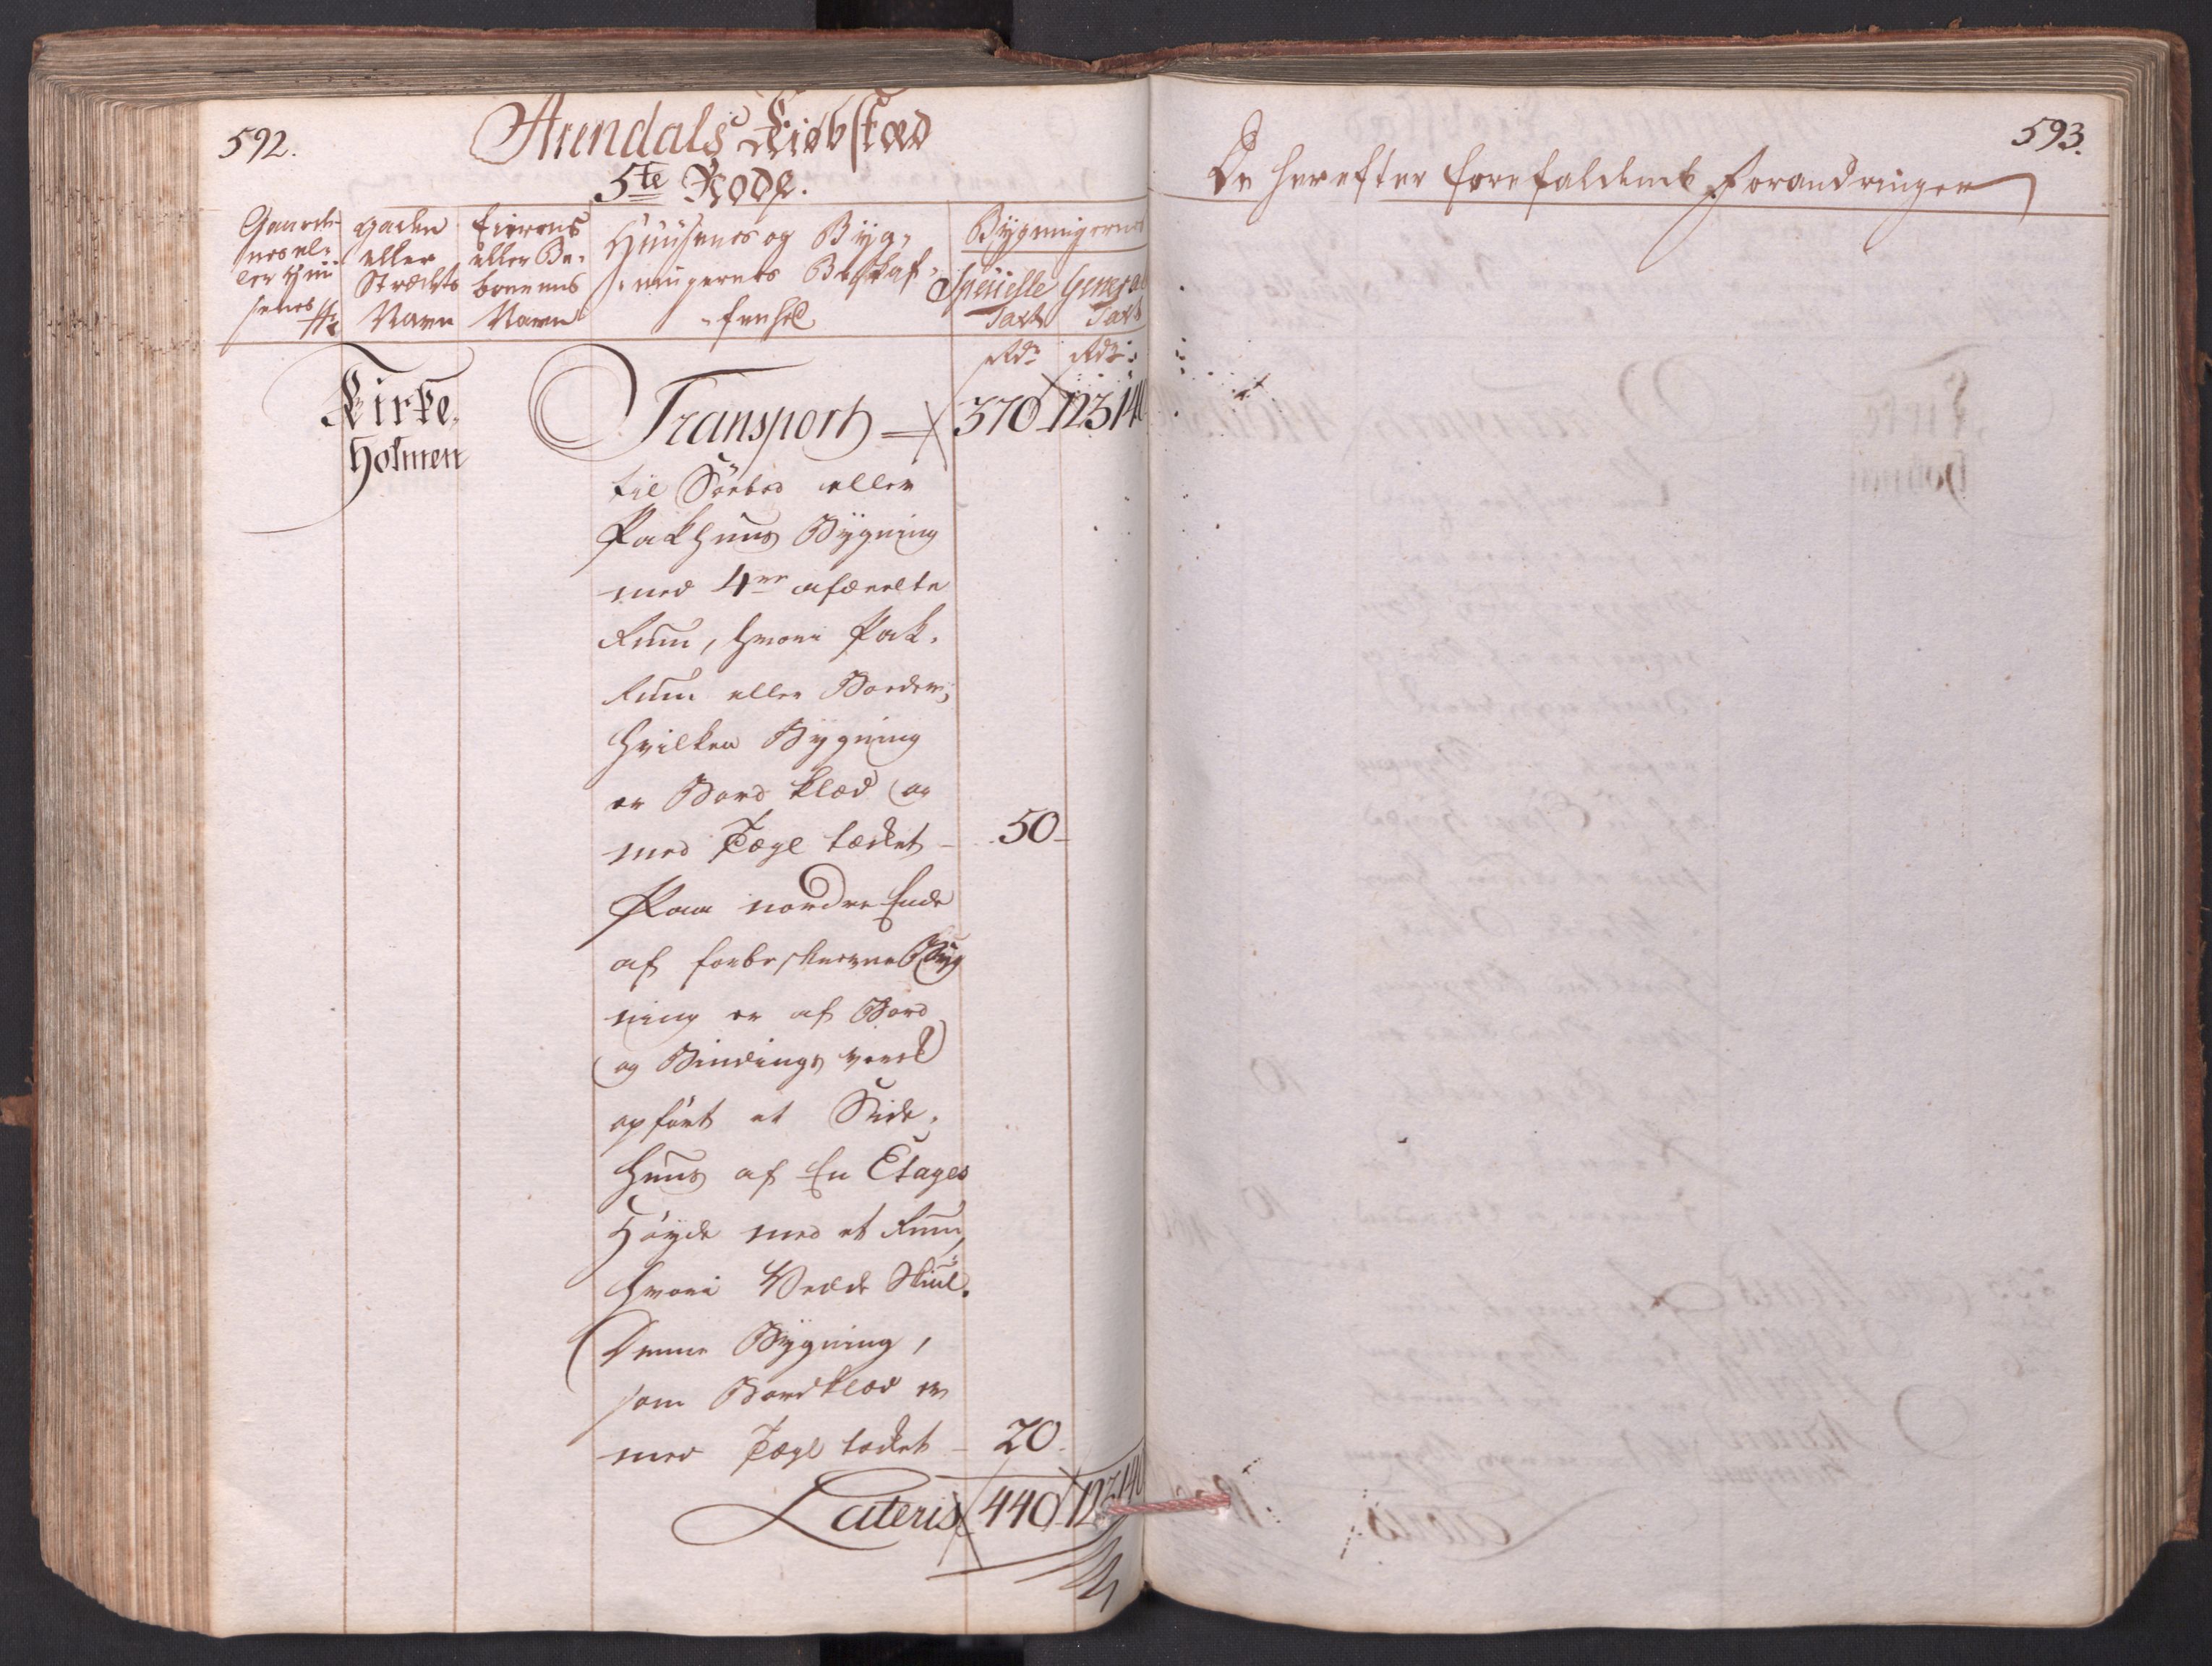 592.
Arendals Kiøbstæd
5te Rode.
Gaarde-
nes el-
ler Huu
senes No
Gaden
eller
Strædets
Navn
Eierens
eller Be-
boerens
Navn
Huusenes og Byg-
ningernes Beskaf-
fenhed
Bygningernes
Specielle Taxt
General Taxt
Rdr Rdr
Kirke-
Holmen
Transport 370 123140
til Söebod eller
Pakhuus Bygning
med 4re afdeelte
Rum, hvori Pak-
Rum eller Boeder,
hvilken Bygning
er Bord klæd og
med Tægl tækket – 50 –
Paa nordre Ende
af forbeskrevne Byg
ning er af Bord
og Bindings verk
opført et Side-
huus af En Etages
Høyde med et Rum,
hvori Vedde Skiul.
Denne Bygning,
som Bordklæd er
med Tægl tækket – 20.
Lateris 440 123140
593.
De herefter forefaldende Forandringer